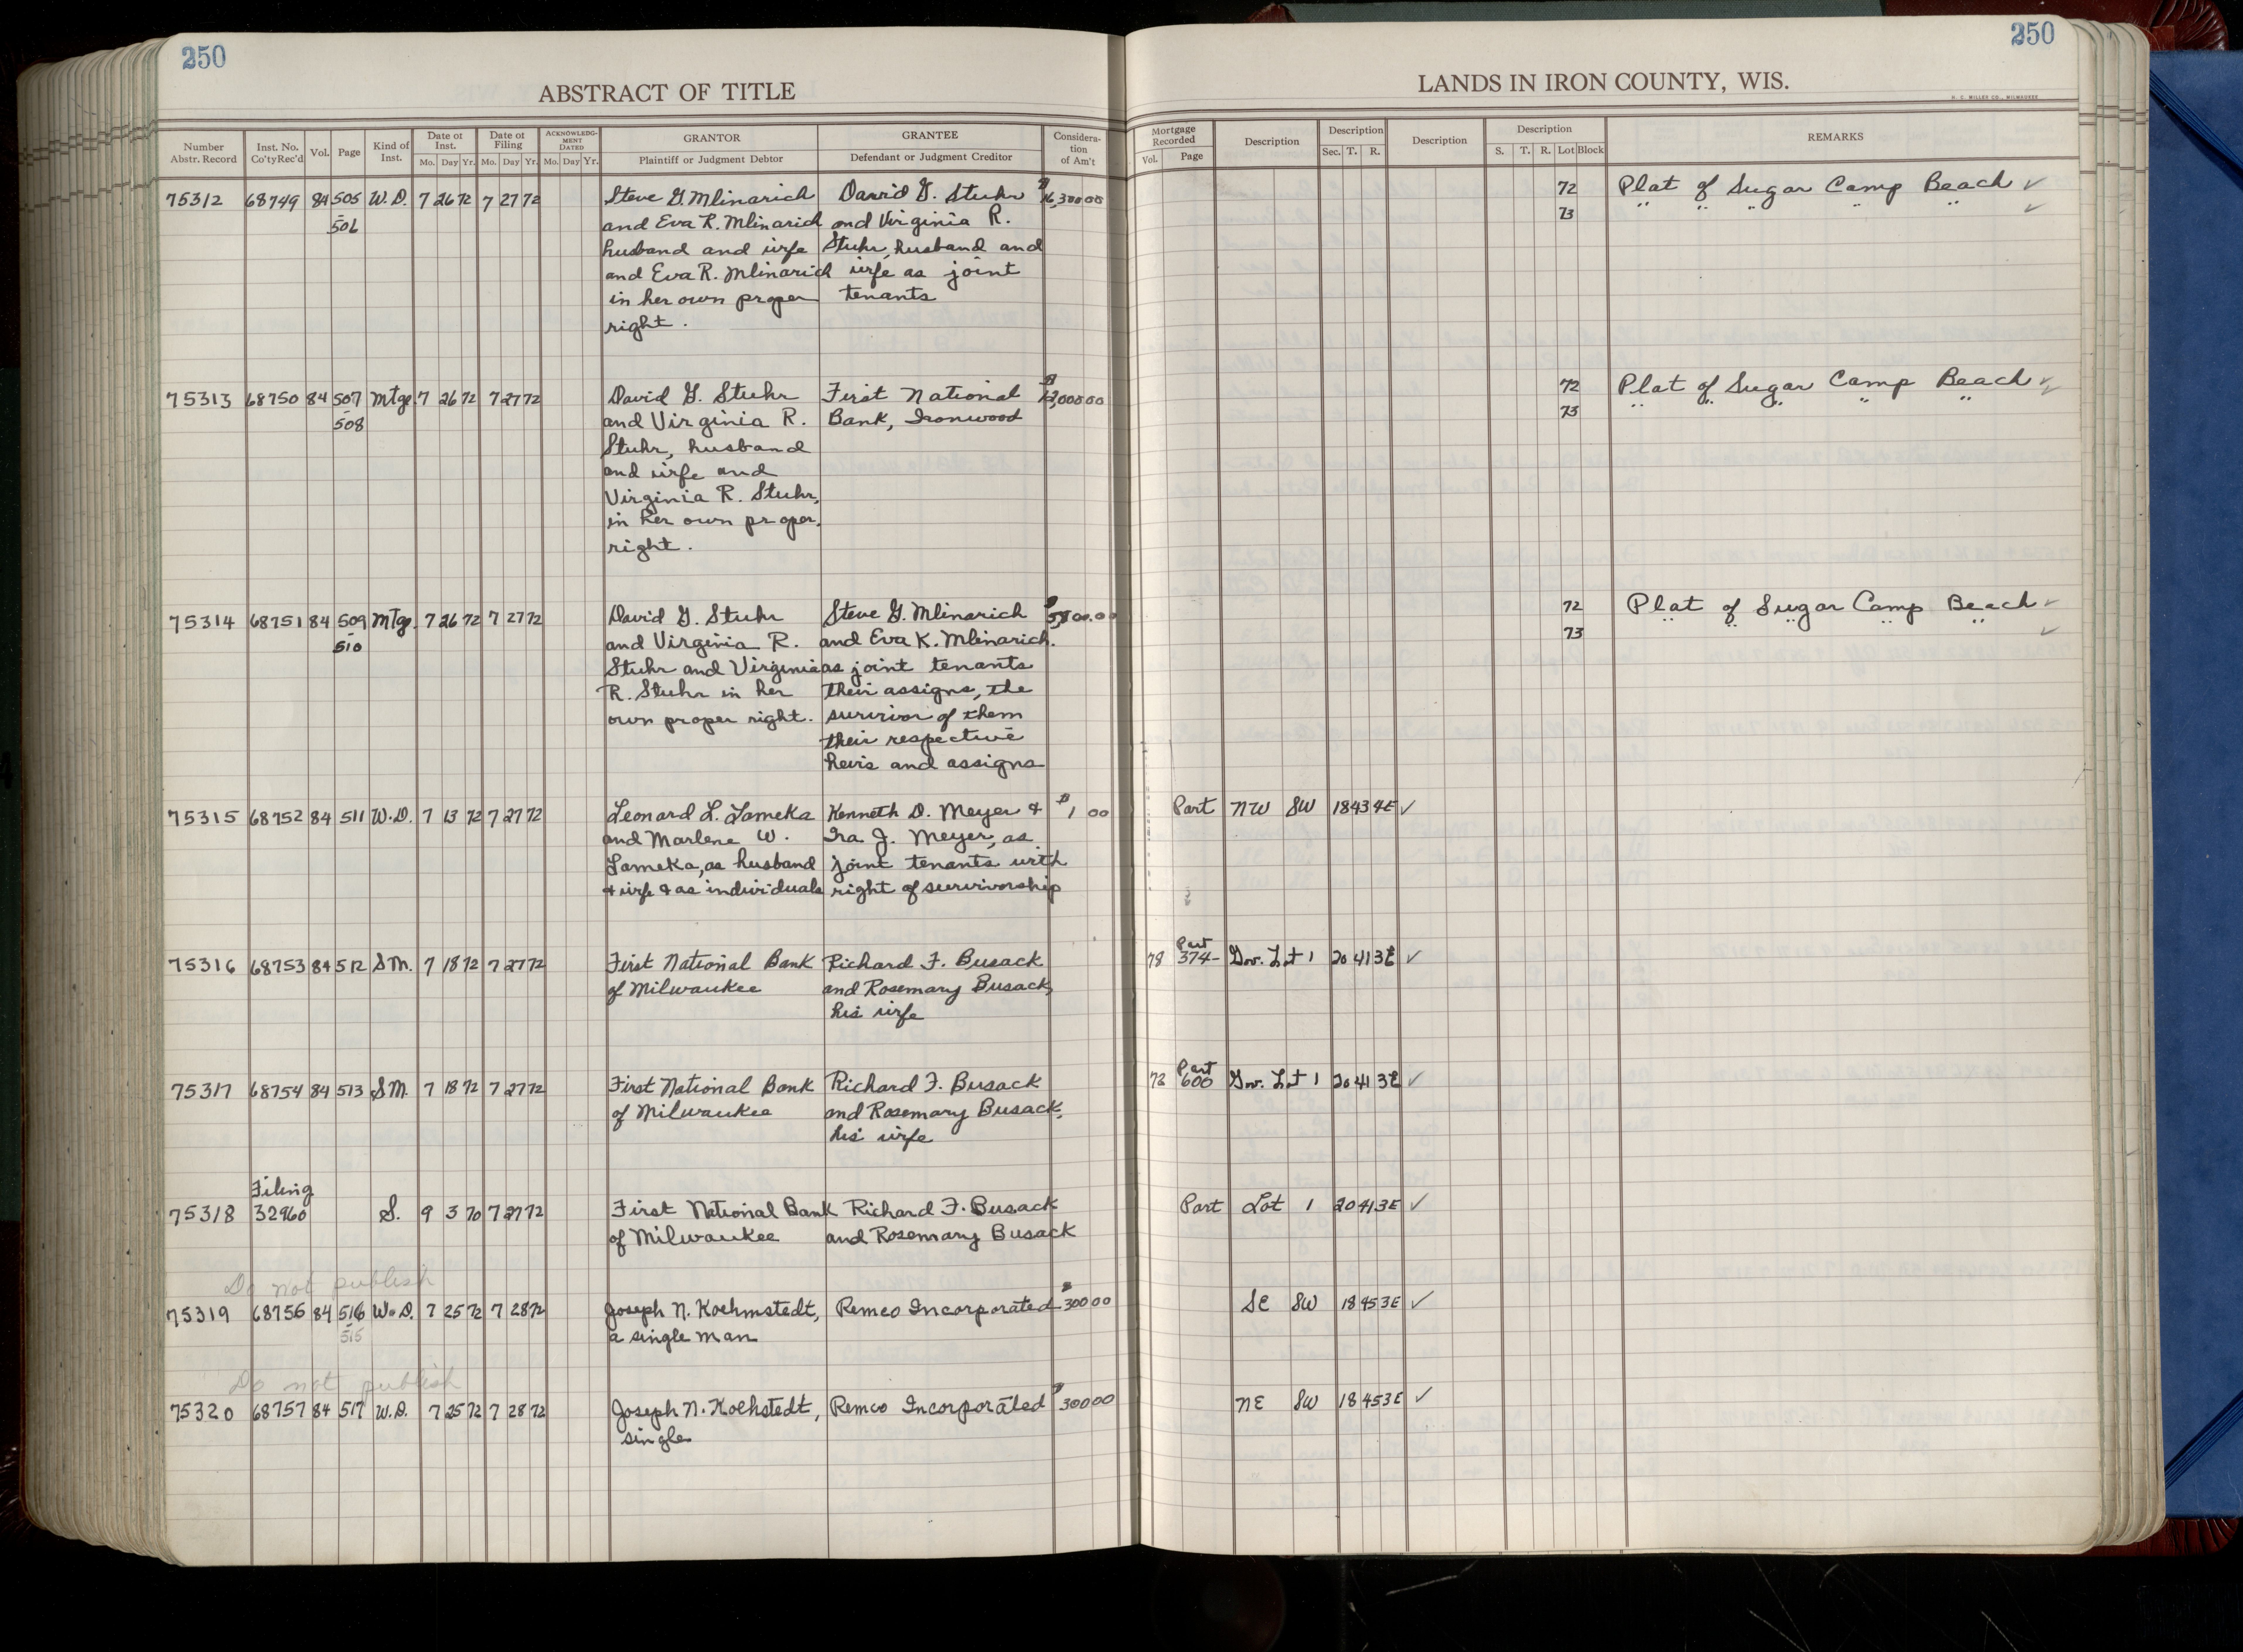 250
250
ABSTRACT OF TITLE
LANDS IN IRON COUNTY, WIS.
H. C. MILLER CO., MILWAUKEE
Number Abstr. Record
Inst. No. Co'ty Rec'd
Vol.
Page
Kind of Inst.
Date of Inst.
Mo. Day Yr.
Date of Filing
Mo. Day Yr.
ACKNOWLEDGMENT DATED
Mo. Day Yr.
GRANTOR
Plaintiff or Judgment Debtor
GRANTEE
Defendant or Judgment Creditor
Consideration of Am't
Mortgage Recorded
Vol. Page
Description
Description
Sec. T. R.
Description
Description
S. T. R. Lot Block
REMARKS
75312 68749 84 505 W.D. 7 26 72 7 27 72 Steve G. Mlinarich David G. Stuhr 72 Plat of Sugar Camp Beach ✓
- 506 and Eva K. Mlinarich and Virginia R. 73 " " " " " ✓
husband and wife Stuhr, husband and
and Eva R. Mlinarich wife as joint
in her own proper tenants
right.
75313 68750 84 507 Mtge 7 26 72 7 27 72 David G. Stuhr First National 72 Plat of Sugar Camp Beach ✓
- 508 and Virginia R. Bank, Ironwood 73 " " " " " ✓
Stuhr, husband
and wife and
Virginia R. Stuhr,
in her own proper
right.
75314 68751 84 509 Mtge. 7 26 72 7 27 72 David G. Stuhr Steve G. Mlinarich 72 Plat of Sugar Camp Beach ✓
- 510 and Virginia R. and Eva K. Mlinarich. 73 " " " " " ✓
Stuhr and Virginia as joint tenants
R. Stuhr in her their assigns, the
own proper right. survivor of them
their respective
heirs and assigns
75315 68752 84 511 W.D. 7 13 72 7 27 72 Leonard L. Lameka Kenneth D. Meyer & $1 00 Part NW SW 18 43 4E ✓
and Marlene W. Ira J. Meyer, as
Lameka, as husband joint tenants with
& wife & as individuals right of survivorship
75316 68753 84 512 S.M. 7 18 72 7 27 72 First National Bank Richard F. Busack 78 Part 374- Gov. Lot 1 20 41 3E ✓
of Milwaukee and Rosemary Busack,
his wife
75317 68754 84 513 S.M. 7 18 72 7 27 72 First National Bank Richard F. Busack 72 Part 600 Gov. Lot 1 20 41 3E ✓
of Milwaukee and Rosemary Busack,
his wife
Filing
75318 32960 S. 9 3 70 7 27 72 First National Bank Richard F. Busack Part Lot 1 20 41 3E ✓
of Milwaukee and Rosemary Busack
Do not publish
75319 68756 84 516 W.D. 7 25 72 7 28 72 Joseph N. Koehmstedt, Remco Incorporated $300 00 SE SW 18 45 3E ✓
- 515 a single man
Do not publish
75320 68757 84 517 W.D. 7 25 72 7 28 72 Joseph N. Koehstedt, Remco Incorporated $300 00 NE SW 18 45 3E ✓
single